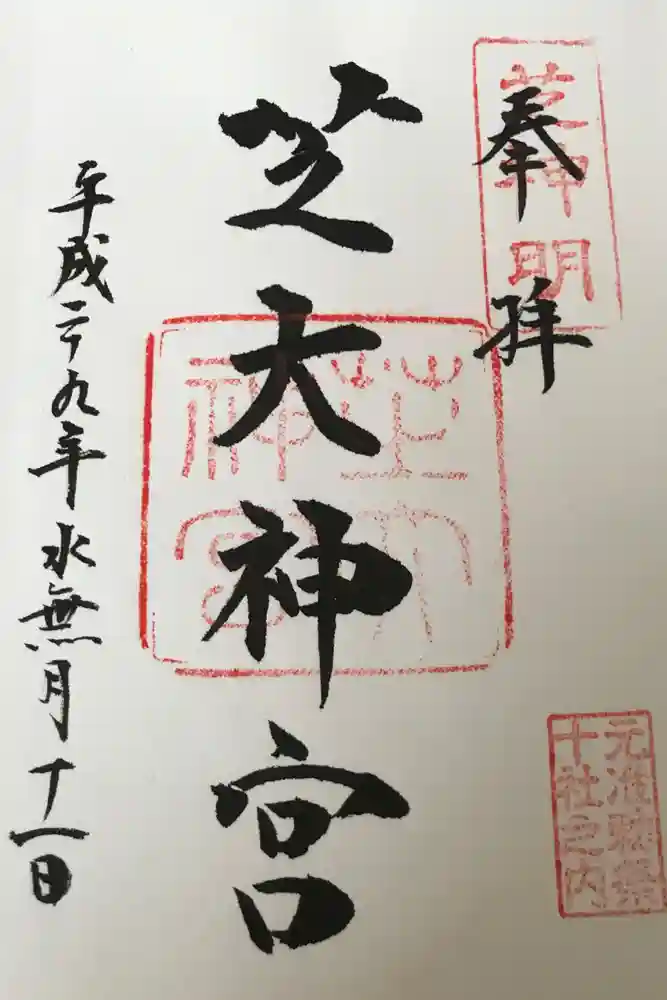 奉拝
芝神明
芝大神宮
芝大神宮
元准勅祭
十社之内
平成二十九年水無月十一日